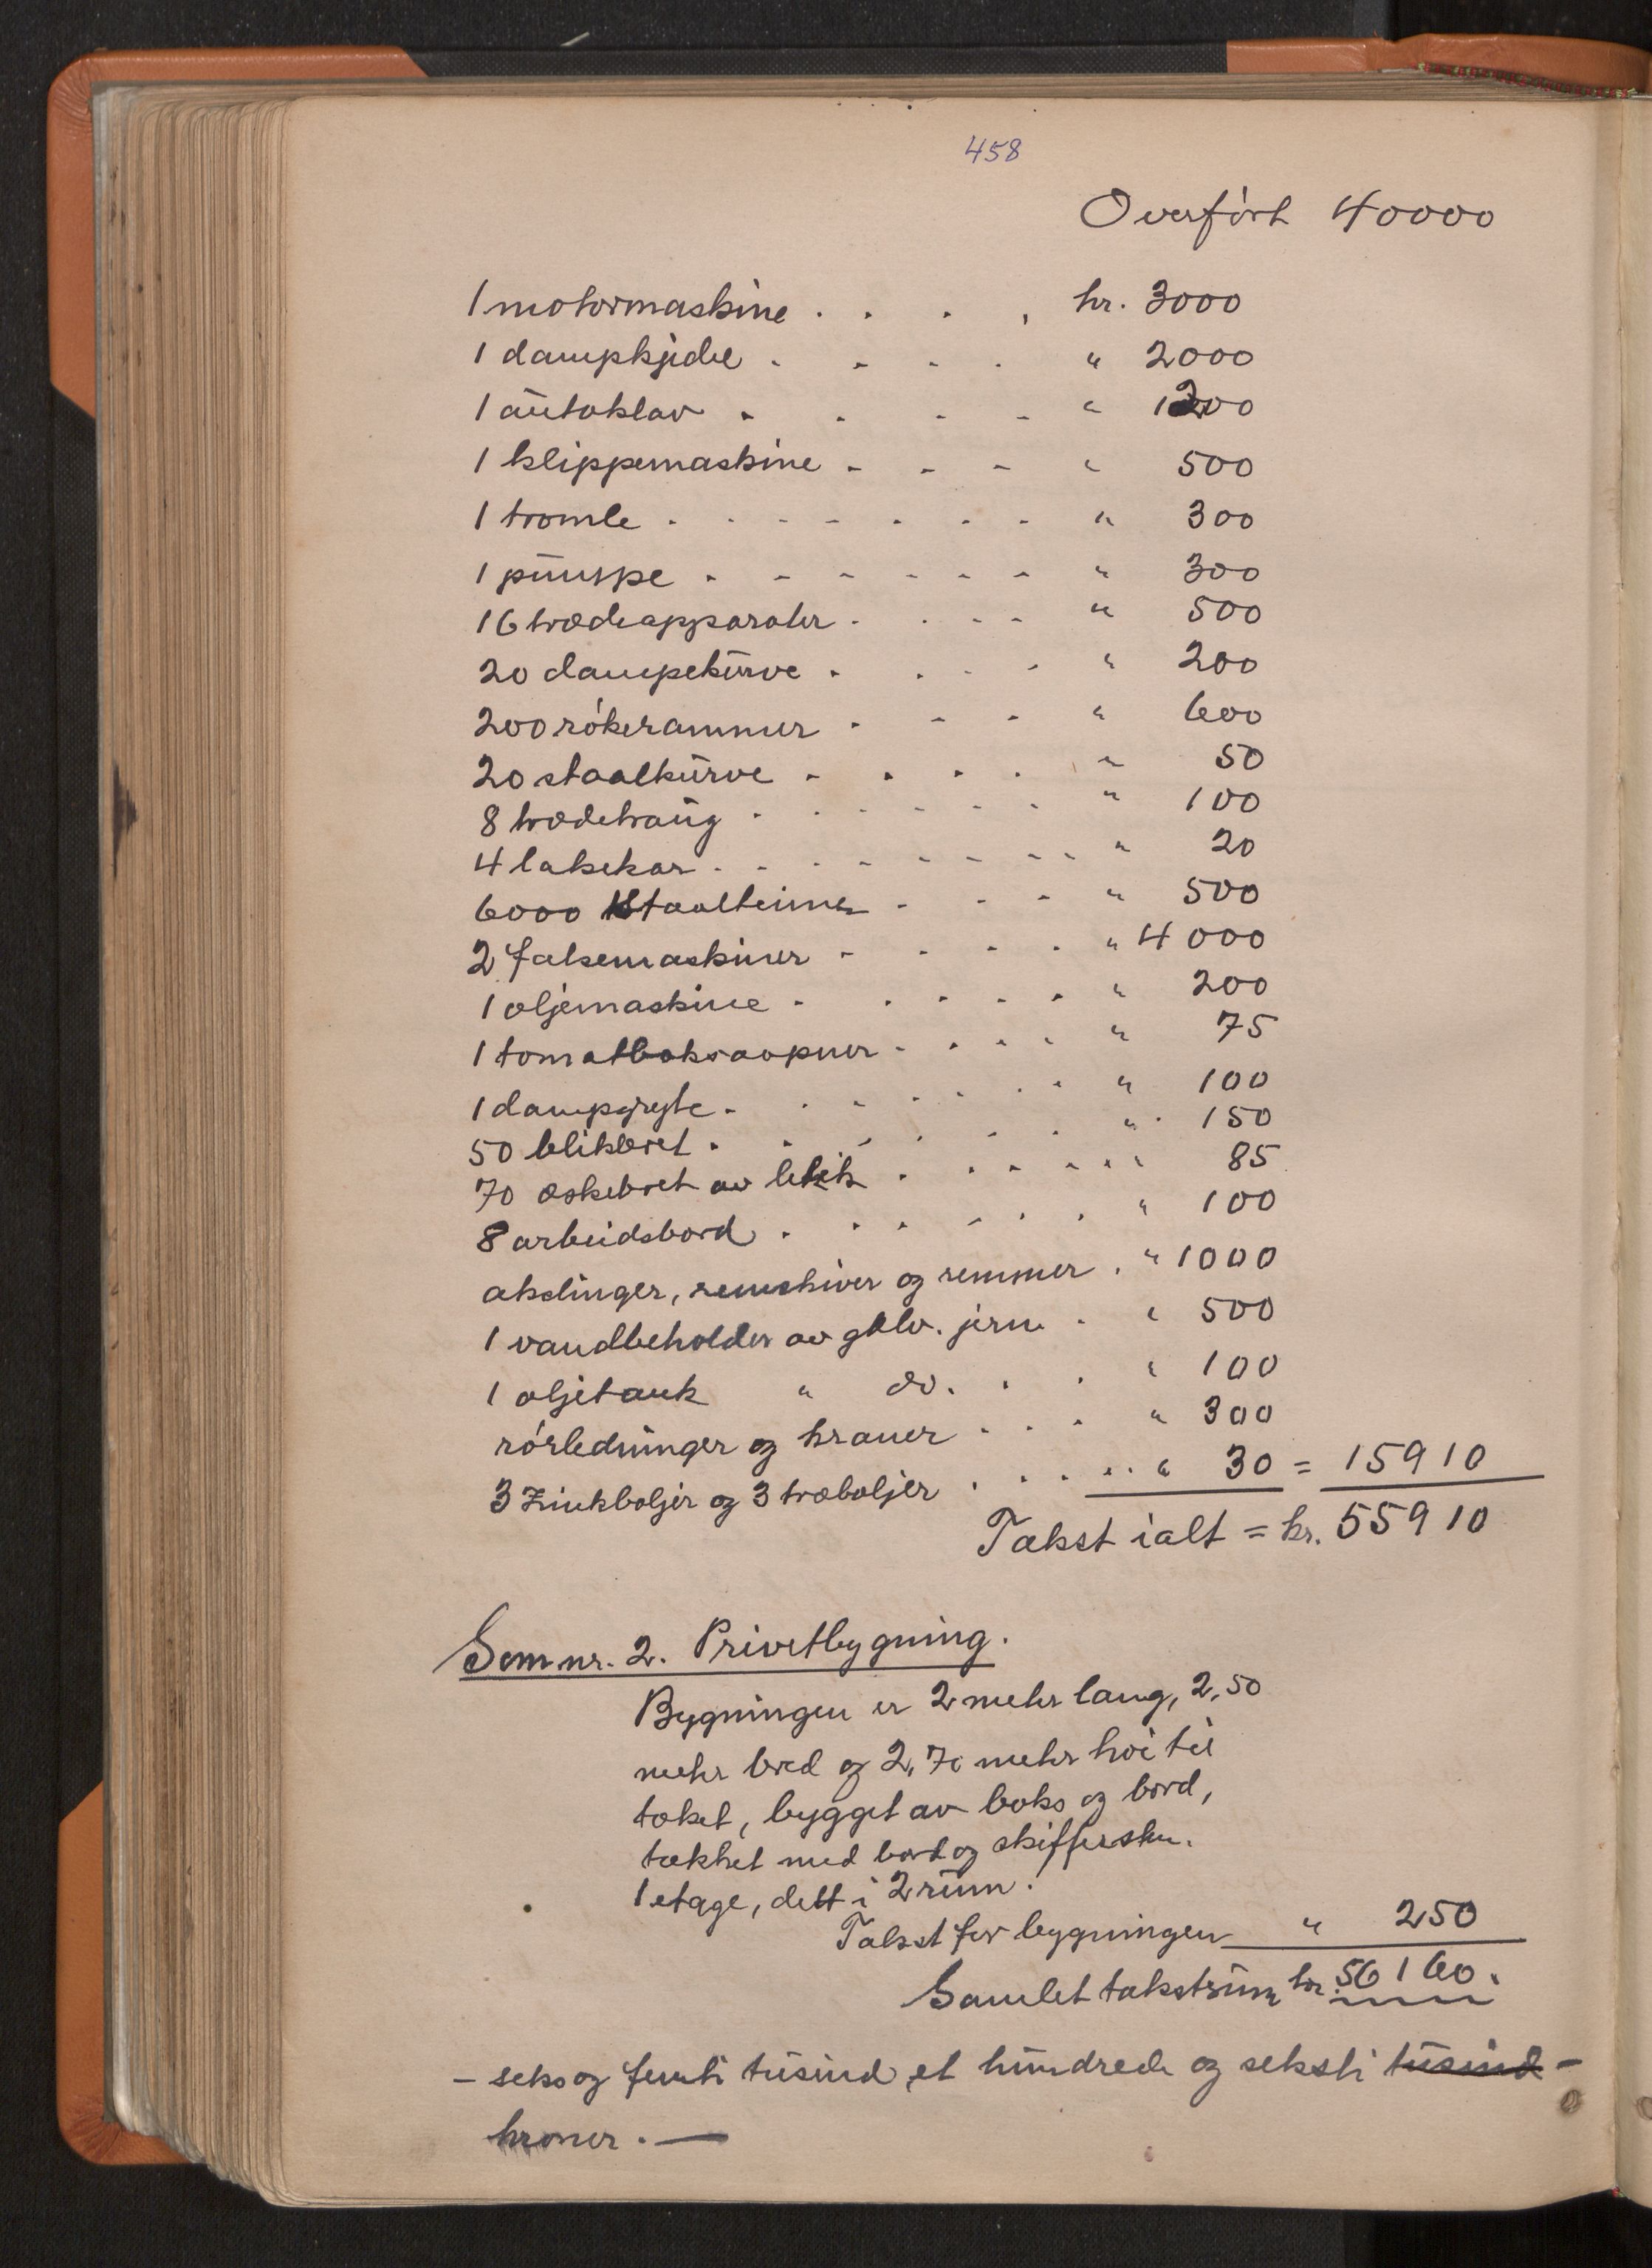 458
Overført 40000
1 motormaskine . . . . kr. 3000
1 dampkjedel . . . . " 2000
1 autoklav . . . . " 1200
1 klippemaskine . . . " 500
1 tromle . . . . . . . " 300
1 pumpe . . . . . . . " 300
16 trædeapparater . . . . " 500
20 dampekurve . . . . " 200
200 røkerammer . . . " 600
20 staalkurve . . . . " 50
8 trædetraug . . . . . . " 100
4 lakekar . . . . . . . . " 20
6000 staalteiner . . . " 500
2 falsemaskiner . . . . " 4000
1 oljemaskine . . . . . " 200
1 tomatboksaapner . . . . " 75
1 dampgryte . . . . . . " 100
50 blikbret . . . . . . " 150
70 æskebret av blik . . . . . " 85
8 arbeidsbord . . . . . . " 100
akslinger, remskiver og remmer . " 1000
1 vandbeholder av galv. jern . " 500
1 oljetank " do. . . " 100
rørledninger og kraner . . . " 300
3 Zinkboljer og 3 træboljer . . . . . " 30 = 15910
Takst ialt = kr. 55910
Som nr. 2. Privetbygning.
Bygningen er 2 meter lang, 2,50
meter bred og 2,70 meter høi til
taket, bygget av boks og bord,
tækket med bord og skiffersten.
1 etage, delt i 2 rum.
Takst for bygningen " 250
Samlet takstsum kr. 56160.
- seks og femti tusind, et hundrede og seksti tusind -
kroner. —